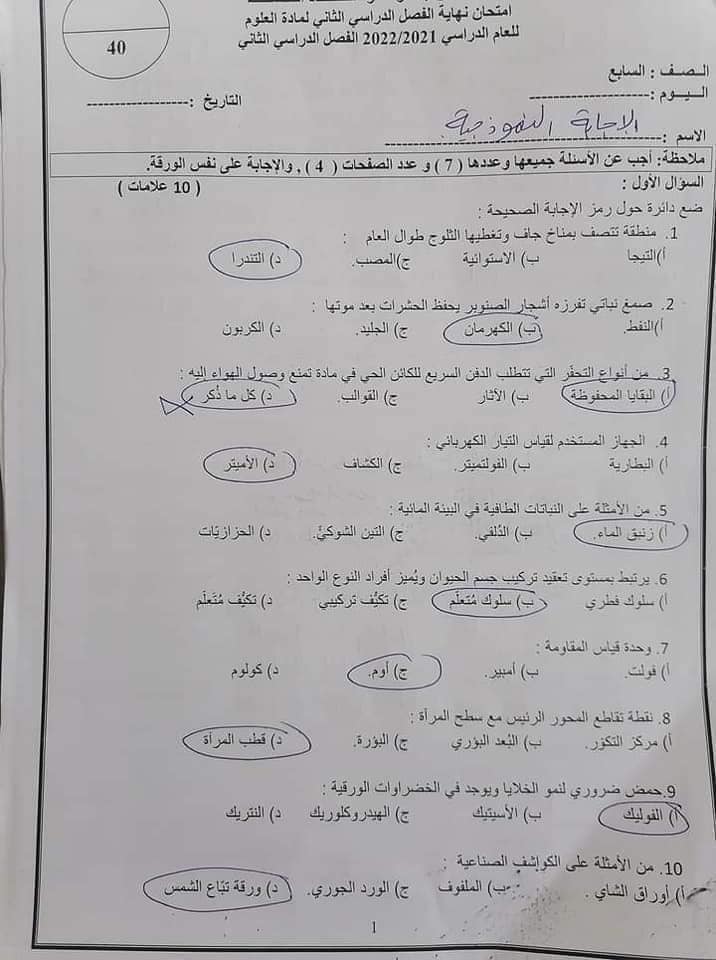 امتحان نهاية الفصل الدراسي الثاني لمادة العلوم
للعام الدراسي 2022/2021 الفصل الدراسي الثاني
40
الـصـف : السابع
الـيـوم :--------------------
التاريخ : ------------------
الاسم :-------------------------------------
الإجابة النموذجية
ملاحظة: أجب عن الأسئلة جميعها وعددها ( 7 ) و عدد الصفحات ( 4 ) , والإجابة على نفس الورقة.
السؤال الأول : ( 10 علامات )
ضع دائرة حول رمز الإجابة الصحيحة :
1. منطقة تتصف بمناخ جاف وتغطيها الثلوج طوال العام :
أ)التيجا ب) الاستوائية ج)المصب. د) التندرا
2. صمغ نباتي تفرزه أشجار الصنوبر يحفظ الحشرات بعد موتها :
أ)النفط. ب) الكهرمان ج) الجليد. د) الكربون
3. من أنواع التحفّر التي تتطلب الدفن السريع للكائن الحي في مادة تمنع وصول الهواء إليه :
أ) البقايا المحفوظة ب) الآثار ج) القوالب. د) كل ما ذُكر
4. الجهاز المستخدم لقياس التيار الكهربائي :
أ) البطارية ب) الفولتميتر. ج) الكشاف د) الأميتر
5. من الأمثلة على النباتات الطافية في البيئة المائية :
أ) زنبق الماء. ب) الدُلفي. ج) التين الشوكيّ. د) الحزازيّات
6. يرتبط بمستوى تعقيد تركيب جسم الحيوان ويُميز أفراد النوع الواحد :
أ) سلوك فطري ب) سلوك مُتعلّم ج) تكيُّف تركيبي د) تكيُّف مُتَعلّم
7. وحدة قياس المقاومة :
أ) فولت. ب) أمبير. ج) أوم. د) كولوم
8. نقطة تقاطع المحور الرئيس مع سطح المرآة :
أ) مركز التكوّر. ب) البُعد البؤري ج) البؤرة. د) قطب المرآة
9.حمض ضروري لنمو الخلايا ويوجد في الخضراوات الورقية :
أ) الفوليك ب) الأسيتيك ج) الهيدروكلوريك د) النتريك
10. من الأمثلة على الكواشف الصناعية :
أ) أوراق الشاي . ب) الملفوف ج) الورد الجوري. د) ورقة تبّاع الشمس
1